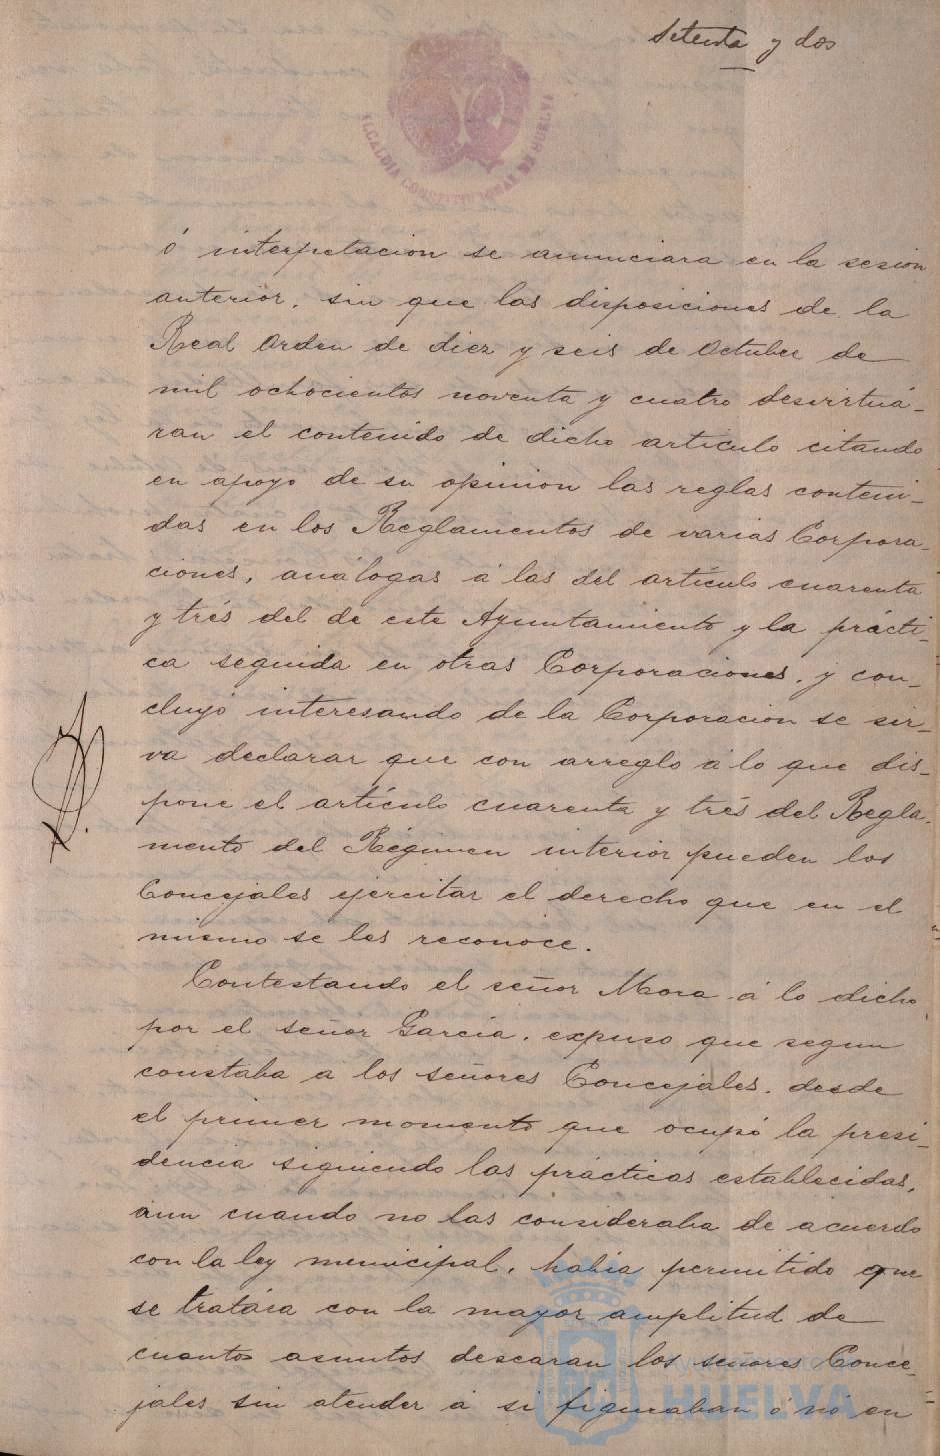 Setenta y dos
ALCALDIA CONSTITUCIONAL DE HUELVA
ó interpelacion se anunciara en la sesion
anterior, sin que las disposiciones de la
Real Orden de diez y seis de Octubre de
mil ochocientos noventa y cuatro desvirtuá-
ran el contenido de dicho articulo citando
en apoyo de su opinion las reglas conteni-
das en los Reglamentos de varias Corpora-
ciones, análogas á las del artículo cuarenta
y trés del de este Ayuntamiento y la prácti-
ca seguida en otras Corporaciones, y con-
cluyó interesando de la Corporacion se sir-
va declarar que con arreglo á lo que dis-
pone el artículo cuarenta y trés del Regla-
mento del Régimen interior pueden los
Concejales ejercitar el derecho que en el
mismo se les reconoce.
Contestando el señor Mora á lo dicho
por el señor García, expuso que segun
constaba á los señores Concejales, desde
el primer momento que ocupó la presi-
dencia siguiendo las prácticas establecidas,
aun cuando no las consideraba de acuerdo
con la ley municipal, habia permitido que
se tratára con la mayor amplitud de
cuantos asuntos desearan los señores Conce-
jales sin atender á si figuraban ó nó en
AYUNTAMIENTO DE
HUELVA